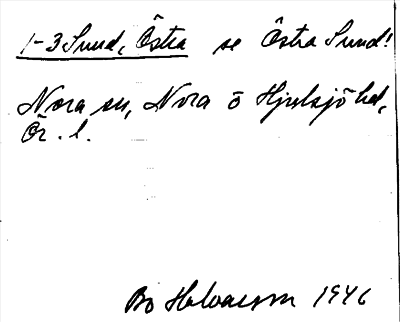 1-3 Sund, Östra se Östra Sund!
Nora sn, Nora o Hjulsjö hd,
Ör. l.
Bo Halvarson 1946